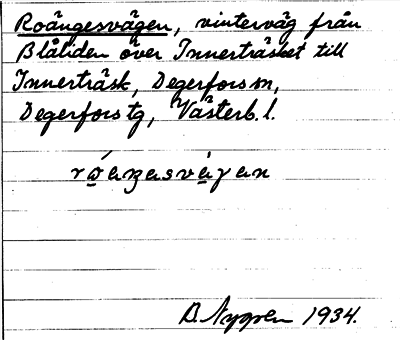 Roängesvägen, vinterväg från
Blåliden över Innerträsket till
Innerträsk, Degerfors sn,
Degerfors tg, Västerb. l.
B. Nygren 1934.